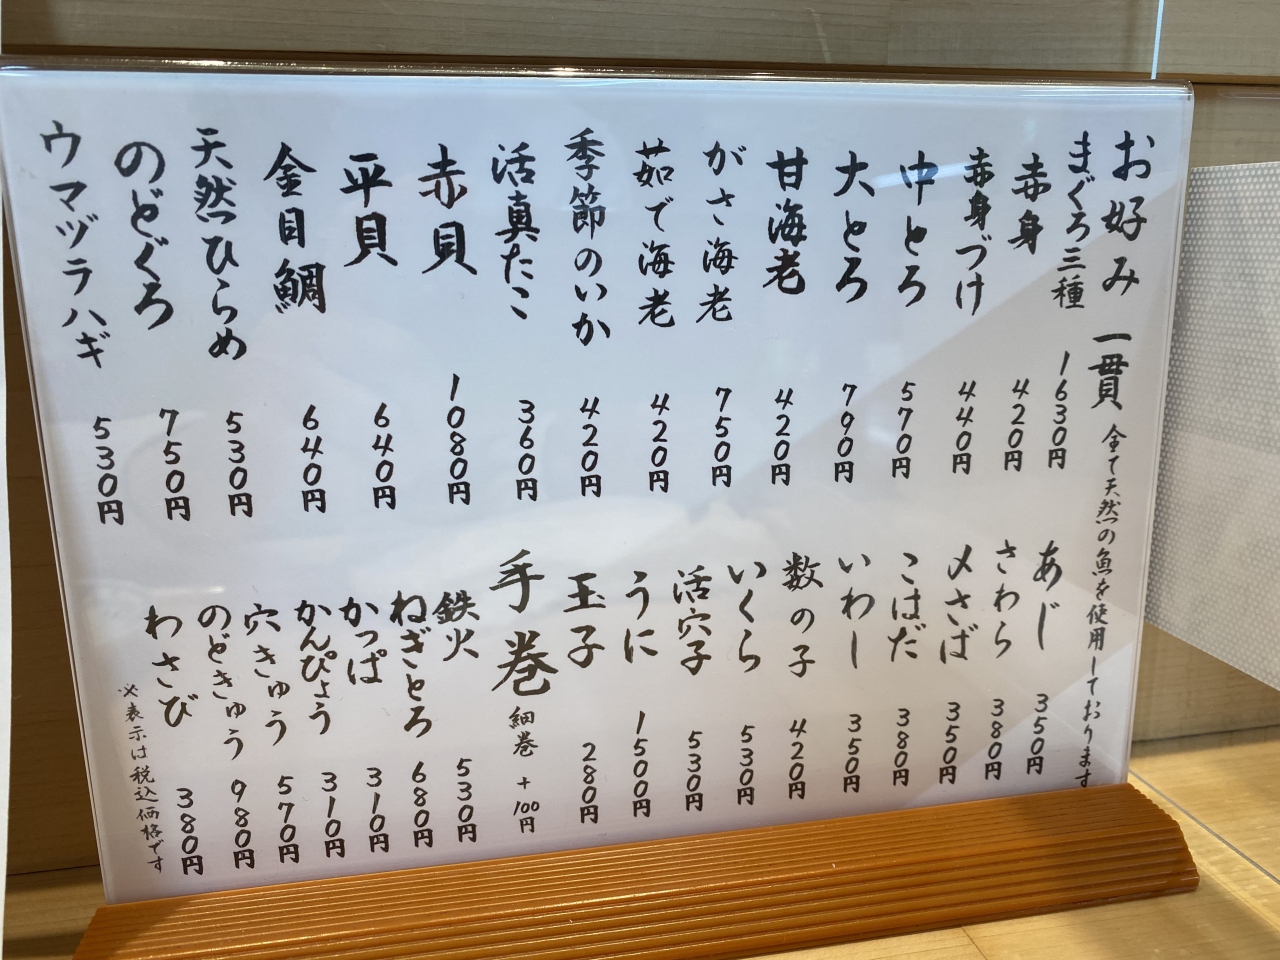 お好み 一貫 全て天然の魚を使用しております
まぐろ三種 1630円
赤身 420円
赤身づけ 440円
中とろ 570円
大とろ 790円
甘海老 420円
がさ海老 750円
茹で海老 420円
季節のいか 420円
活真たこ 360円
赤貝 1080円
平貝 640円
金目鯛 640円
天然ひらめ 530円
のどぐろ 750円
ウマヅラハギ 530円
あじ 350円
さわら 380円
〆さば 350円
こはだ 380円
いわし 350円
数の子 420円
いくら 530円
活穴子 530円
うに 1500円
玉子 280円
手巻 細巻 +100円
鉄火 530円
ねぎとろ 680円
かっぱ 310円
かんぴょう 310円
穴きゅう 570円
のどきゅう 980円
わさび 380円
※表示は税込価格です